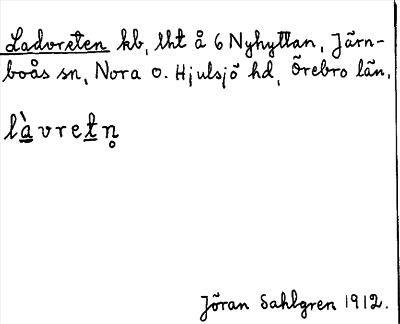 Ladvreten kb, lht å 6 Nyhyttan, Järn-
boås sn, Nora o. Hjulsjö hd, Örebro län.
là̠vret̠n̥
Jöran Sahlgren 1912.